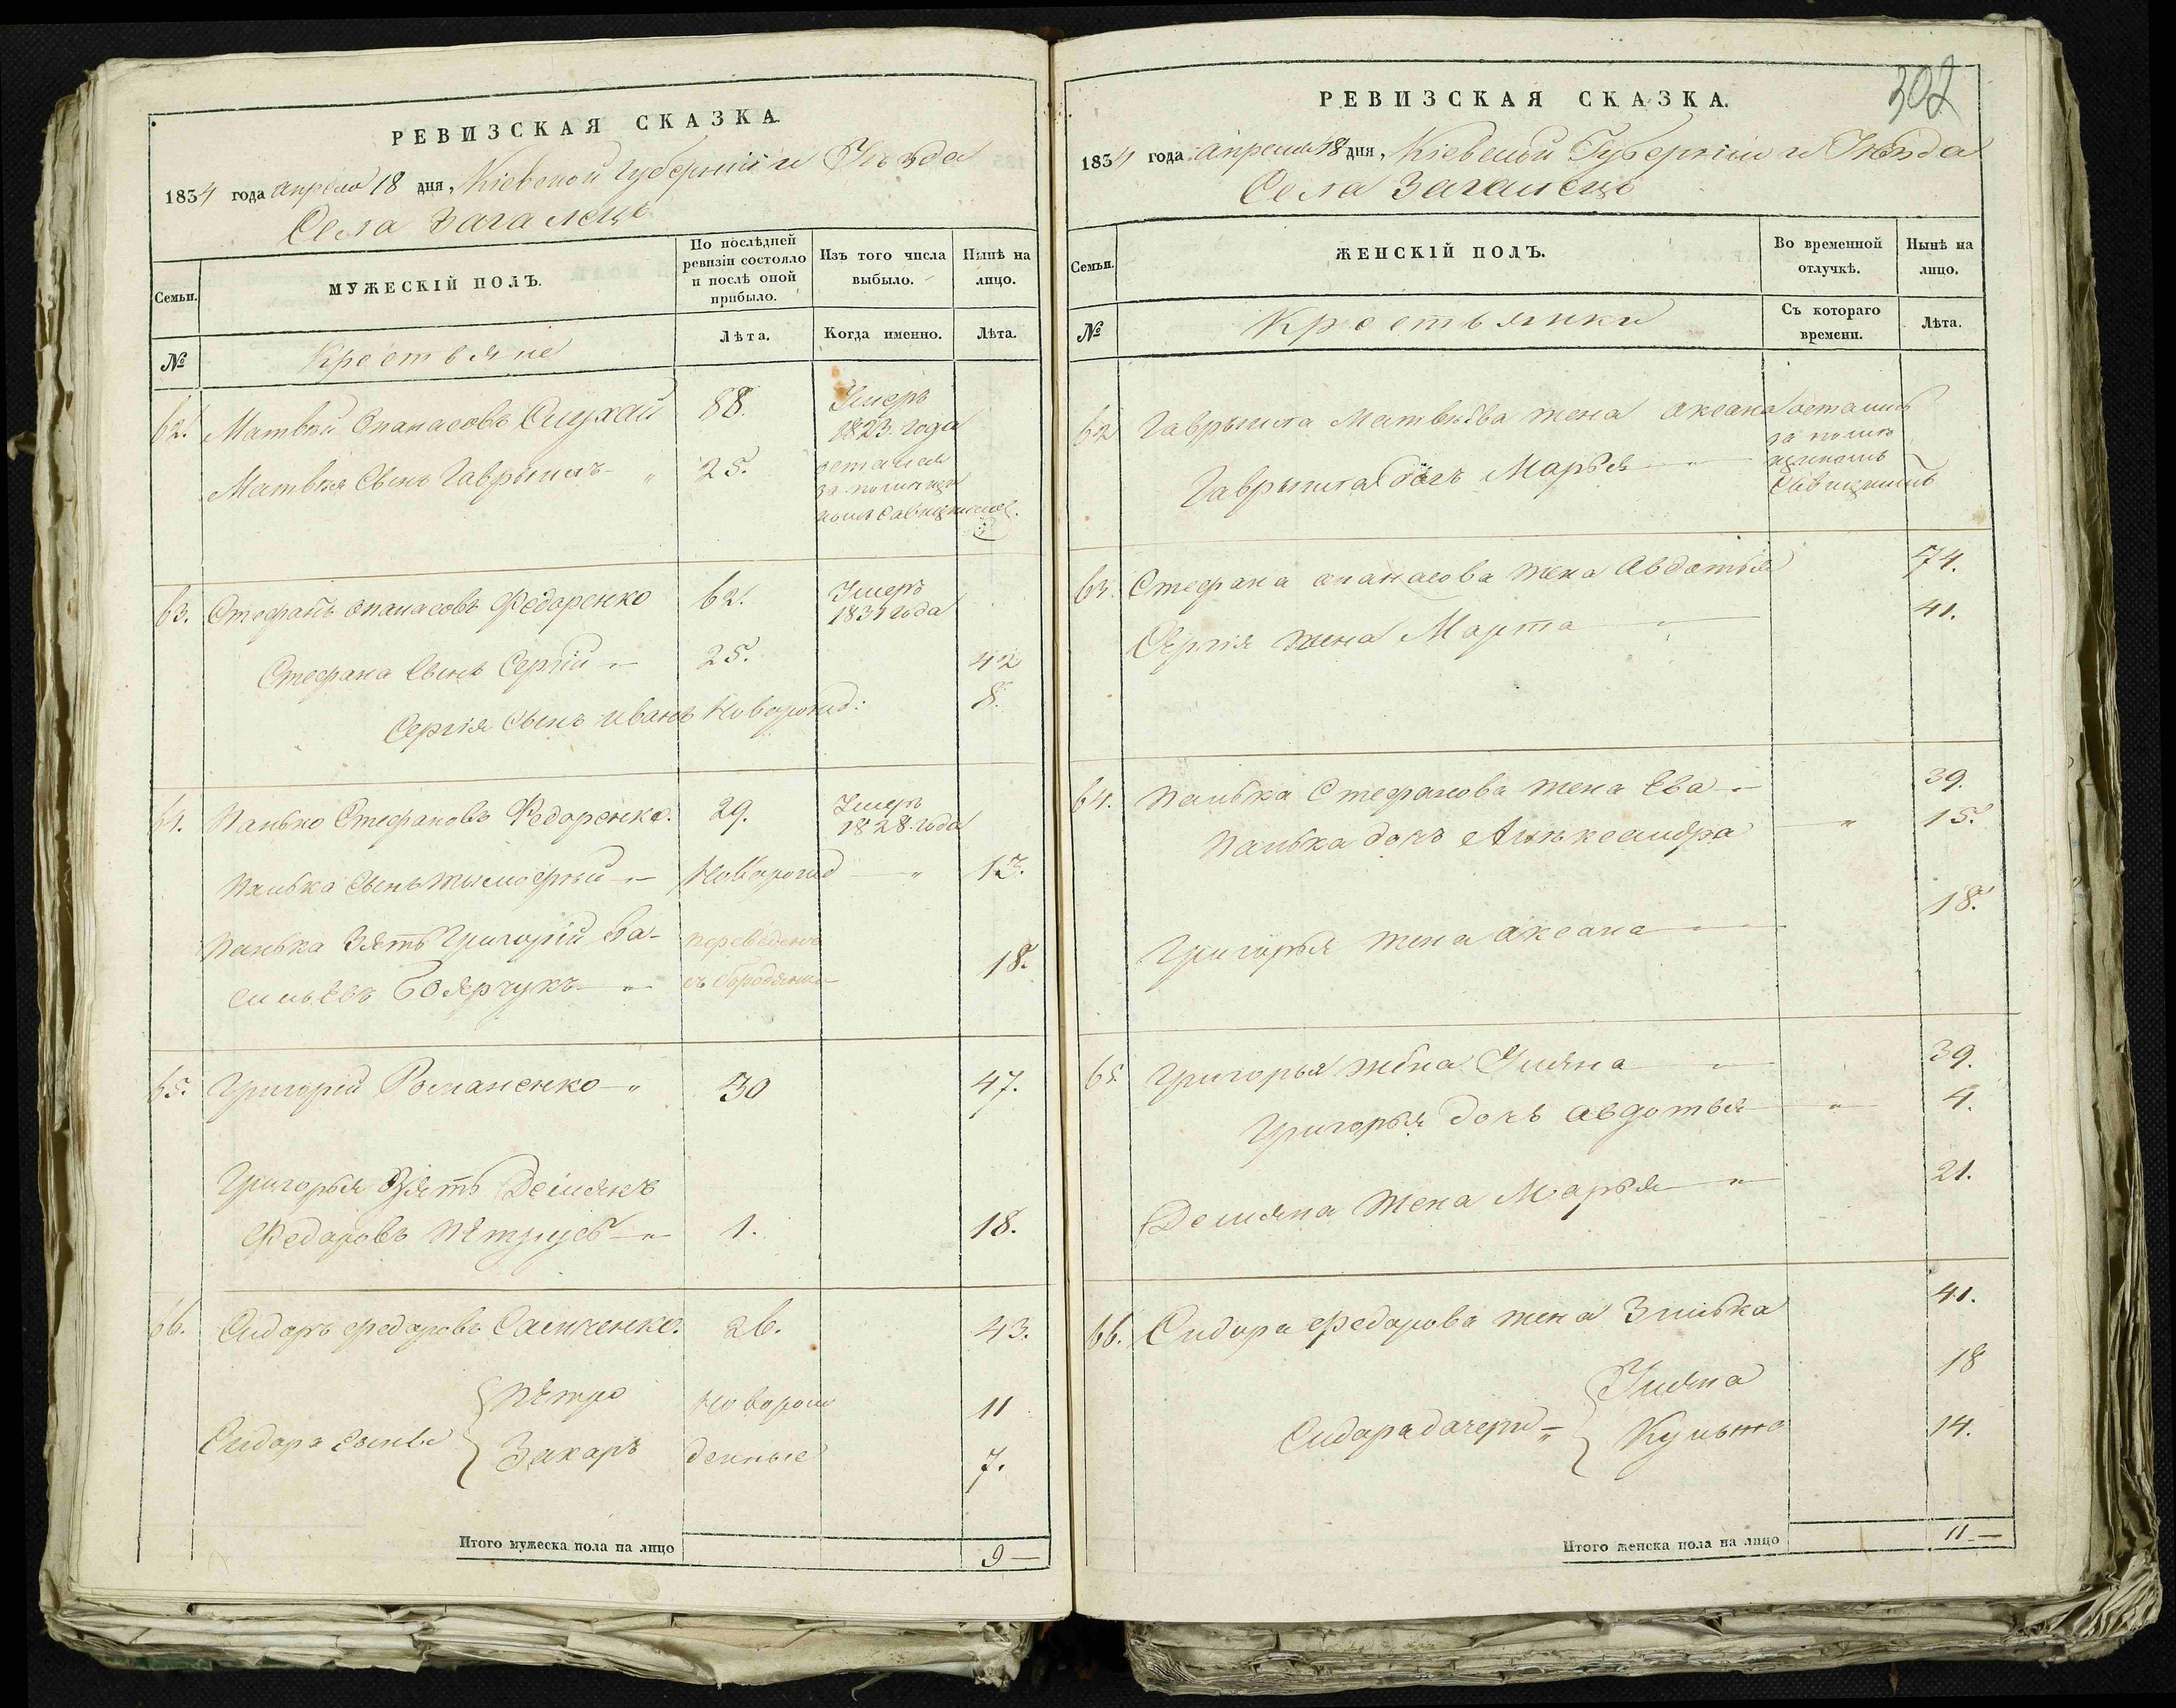 РЕВИЗСКАЯ СКАЗКА.
1834 года апреля 18 дня, Кіевской Губерніи и Уезда
Села Загалецъ
Семьи.
МУЖЕСКІЙ ПОЛЪ.
По послѣдней ревизіи состояло и послѣ оной прибыло.
Изъ того числа выбыло.
Нынѣ на лицо.
№
Крестьяне
Лѣта.
Когда именно.
Лѣта.
62. Матвѣй Опанасовъ 88. Умеръ 1823. года
Матвѣя Сынъ Гаврыилъ 25. остался за
63. Стефанъ Опанасовъ Федоренко 62. Умеръ 1831 года
Стефана Сынъ Сергій 25. 42
Сергія Сынъ Иванъ Новорожд: 8.
64. Панько Стефановъ Федоренко. 29. Умеръ 1828. года
Панька Сынъ Тымофѣй Новорожд 13.
Панька Зять Григорій Ва- переведенъ
сильевъ Боярчукъ съ Бородянки 18.
65. Григорій Романенко 30 47.
Григорья Зять Демянъ
Федоровъ 1. 18.
66. Сидоръ Федоровъ 26. 43.
Сидора Сыны
Петро Новорож 11
Захаръ денные 7.
Итого мужеска пола на лицо 9 —
302
РЕВИЗСКАЯ СКАЗКА.
1834 года апреля 18 дня, Кіевской Губерніи и Уезда
Села Загалецъ
Семьи.
ЖЕНСКІЙ ПОЛЪ.
Во временной отлучкѣ.
Нынѣ на лицо.
№
Крестьянки
Съ котораго времени.
Лѣта.
62 Гаврыила Матвѣева жена Оксана остались
Гаврыила дочъ Марья за
63. Стефана Опанасова жена Авдотья 74.
Сергія жена Марта 41.
64. Панька Стефанова жена Ева 39.
Панька дочъ Алѣксандра 15.
Григорья жена Оксана 18.
65. Григорья жена Уляна 39.
Григорья дочь Авдотья 4.
Демяна жена Марья 21.
66. Сидора Федорова жена Зинька 41.
Уляна 18
Сидора дочери
Кулына 14.
Итого женска пола на лицо 11 —